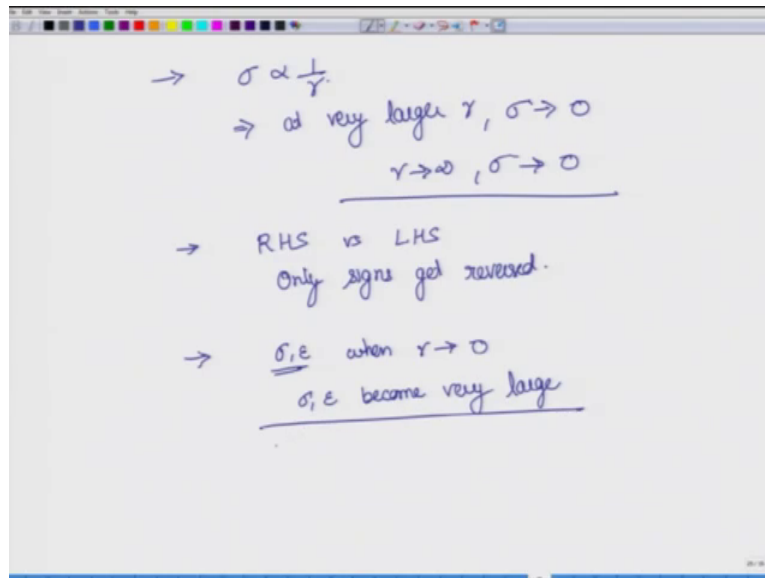 → σ ∝ 1/r.
⇒ at very larger r, σ → 0
r → ∞, σ → 0
→ RHS vs LHS
Only signs get reversed.
→ σ, ε when r → 0
σ, ε become very large